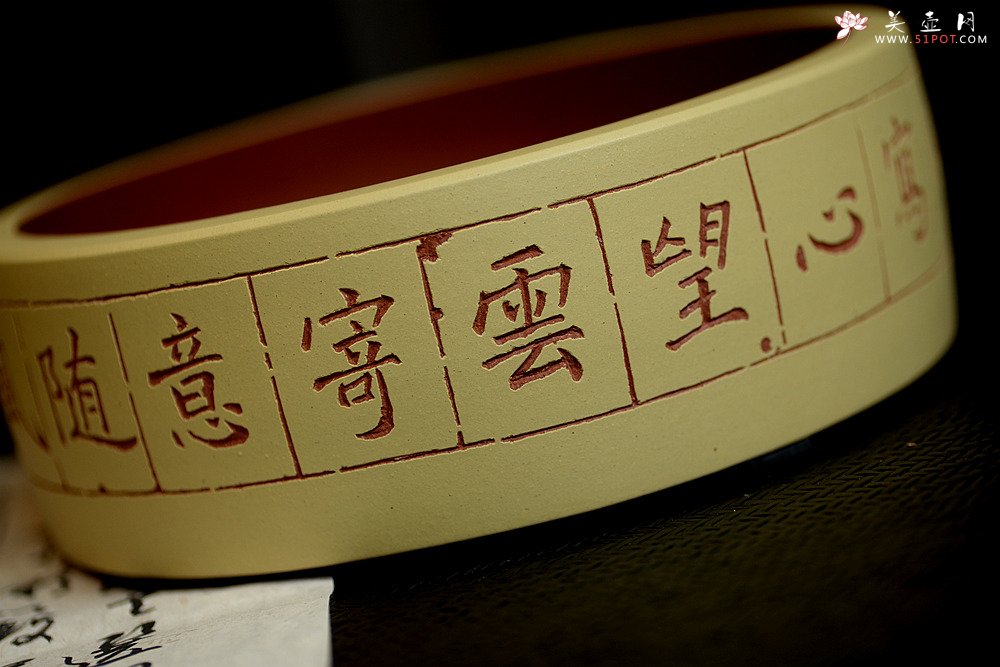 美壶网
WWW.51POT.COM
心望雲寄意随